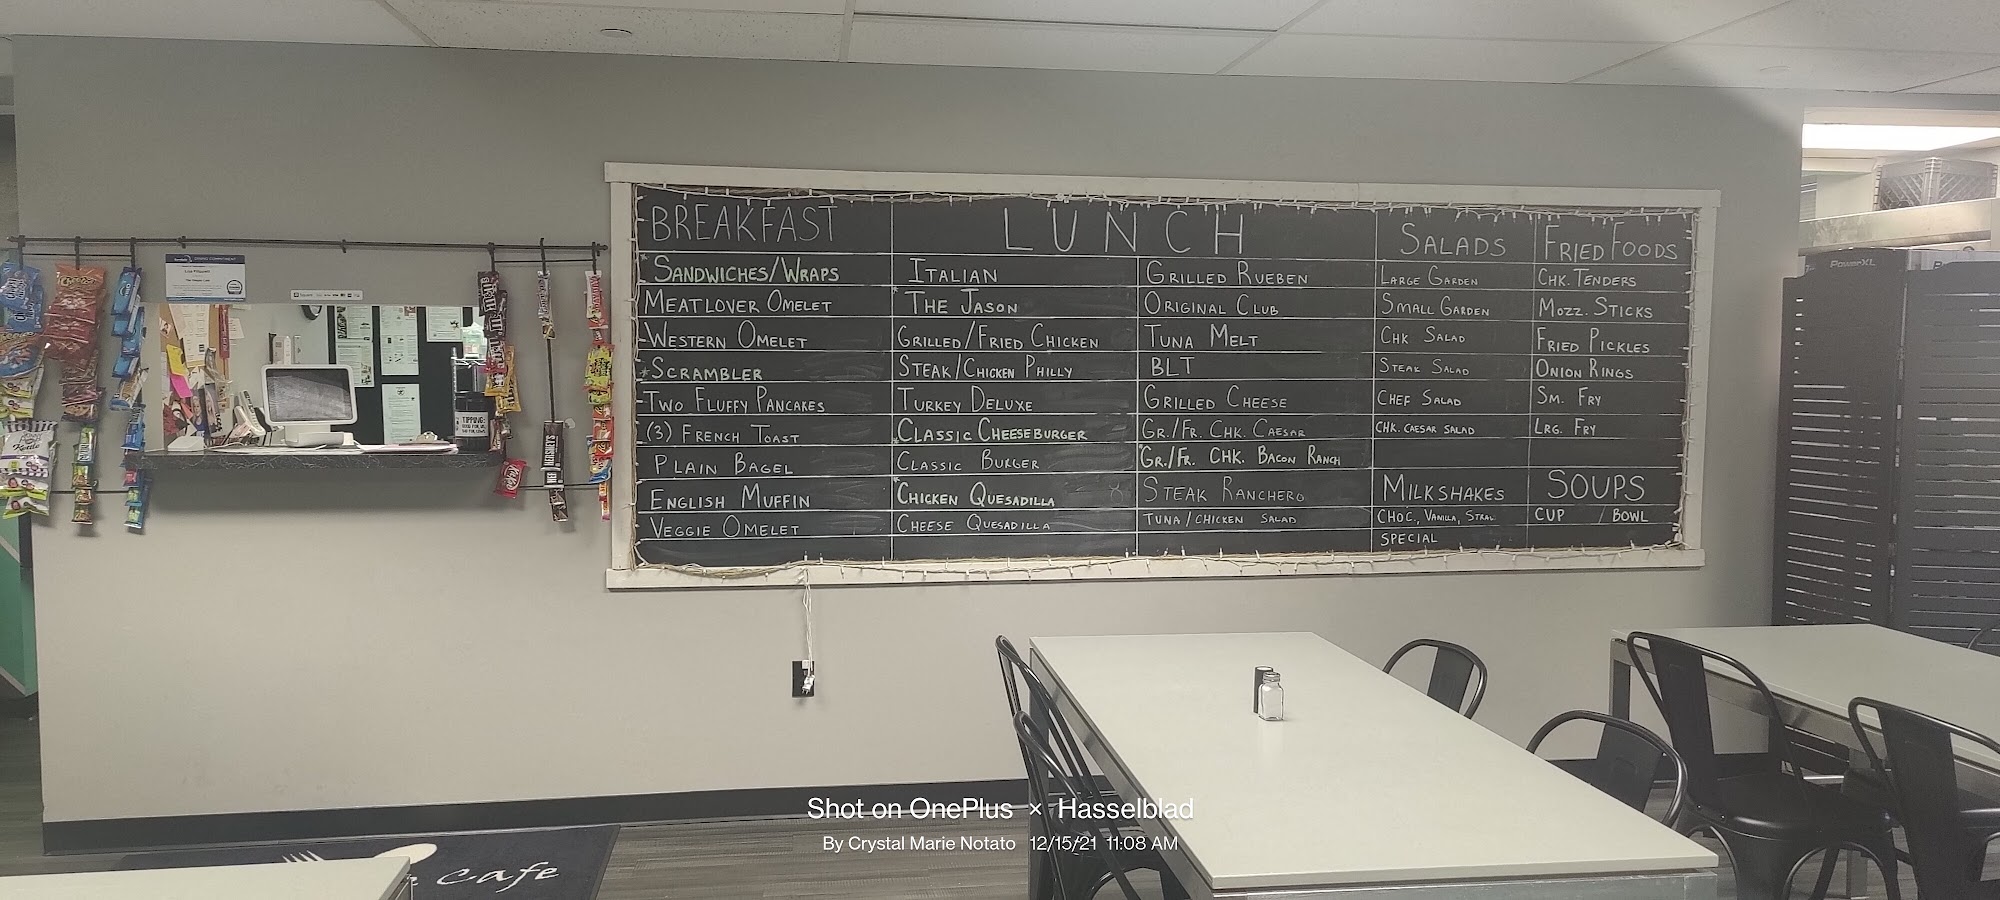 BREAKFAST
*SANDWICHES/WRAPS
MEATLOVER OMELET
WESTERN OMELET
*SCRAMBLER
TWO FLUFFY PANCAKES
(3) FRENCH TOAST
PLAIN BAGEL
ENGLISH MUFFIN
VEGGIE OMELET
LUNCH
ITALIAN
*THE JASON
GRILLED/FRIED CHICKEN
STEAK/CHICKEN PHILLY
TURKEY DELUXE
*CLASSIC CHEESEBURGER
CLASSIC BURGER
*CHICKEN QUESADILLA
CHEESE QUESADILLA
GRILLED RUEBEN
ORIGINAL CLUB
TUNA MELT
BLT
GRILLED CHEESE
GR./FR. CHK. CAESAR
*GR./FR. CHK. BACON RANCH
STEAK RANCHERO
TUNA/CHICKEN SALAD
SALADS
LARGE GARDEN
SMALL GARDEN
CHK SALAD
STEAK SALAD
CHEF SALAD
CHK. CAESAR SALAD
MILKSHAKES
CHOC., VANILLA, STRAW
SPECIAL
FRIED FOODS
CHK. TENDERS
MOZZ. STICKS
FRIED PICKLES
ONION RINGS
SM. FRY
LRG. FRY
SOUPS
CUP / BOWL
PowerXL
TIPPING:
HERSHEY'S
KitKat
Cafe
Shot on OnePlus × Hasselblad
By Crystal Marie Notato 12/15/21 11:08 AM